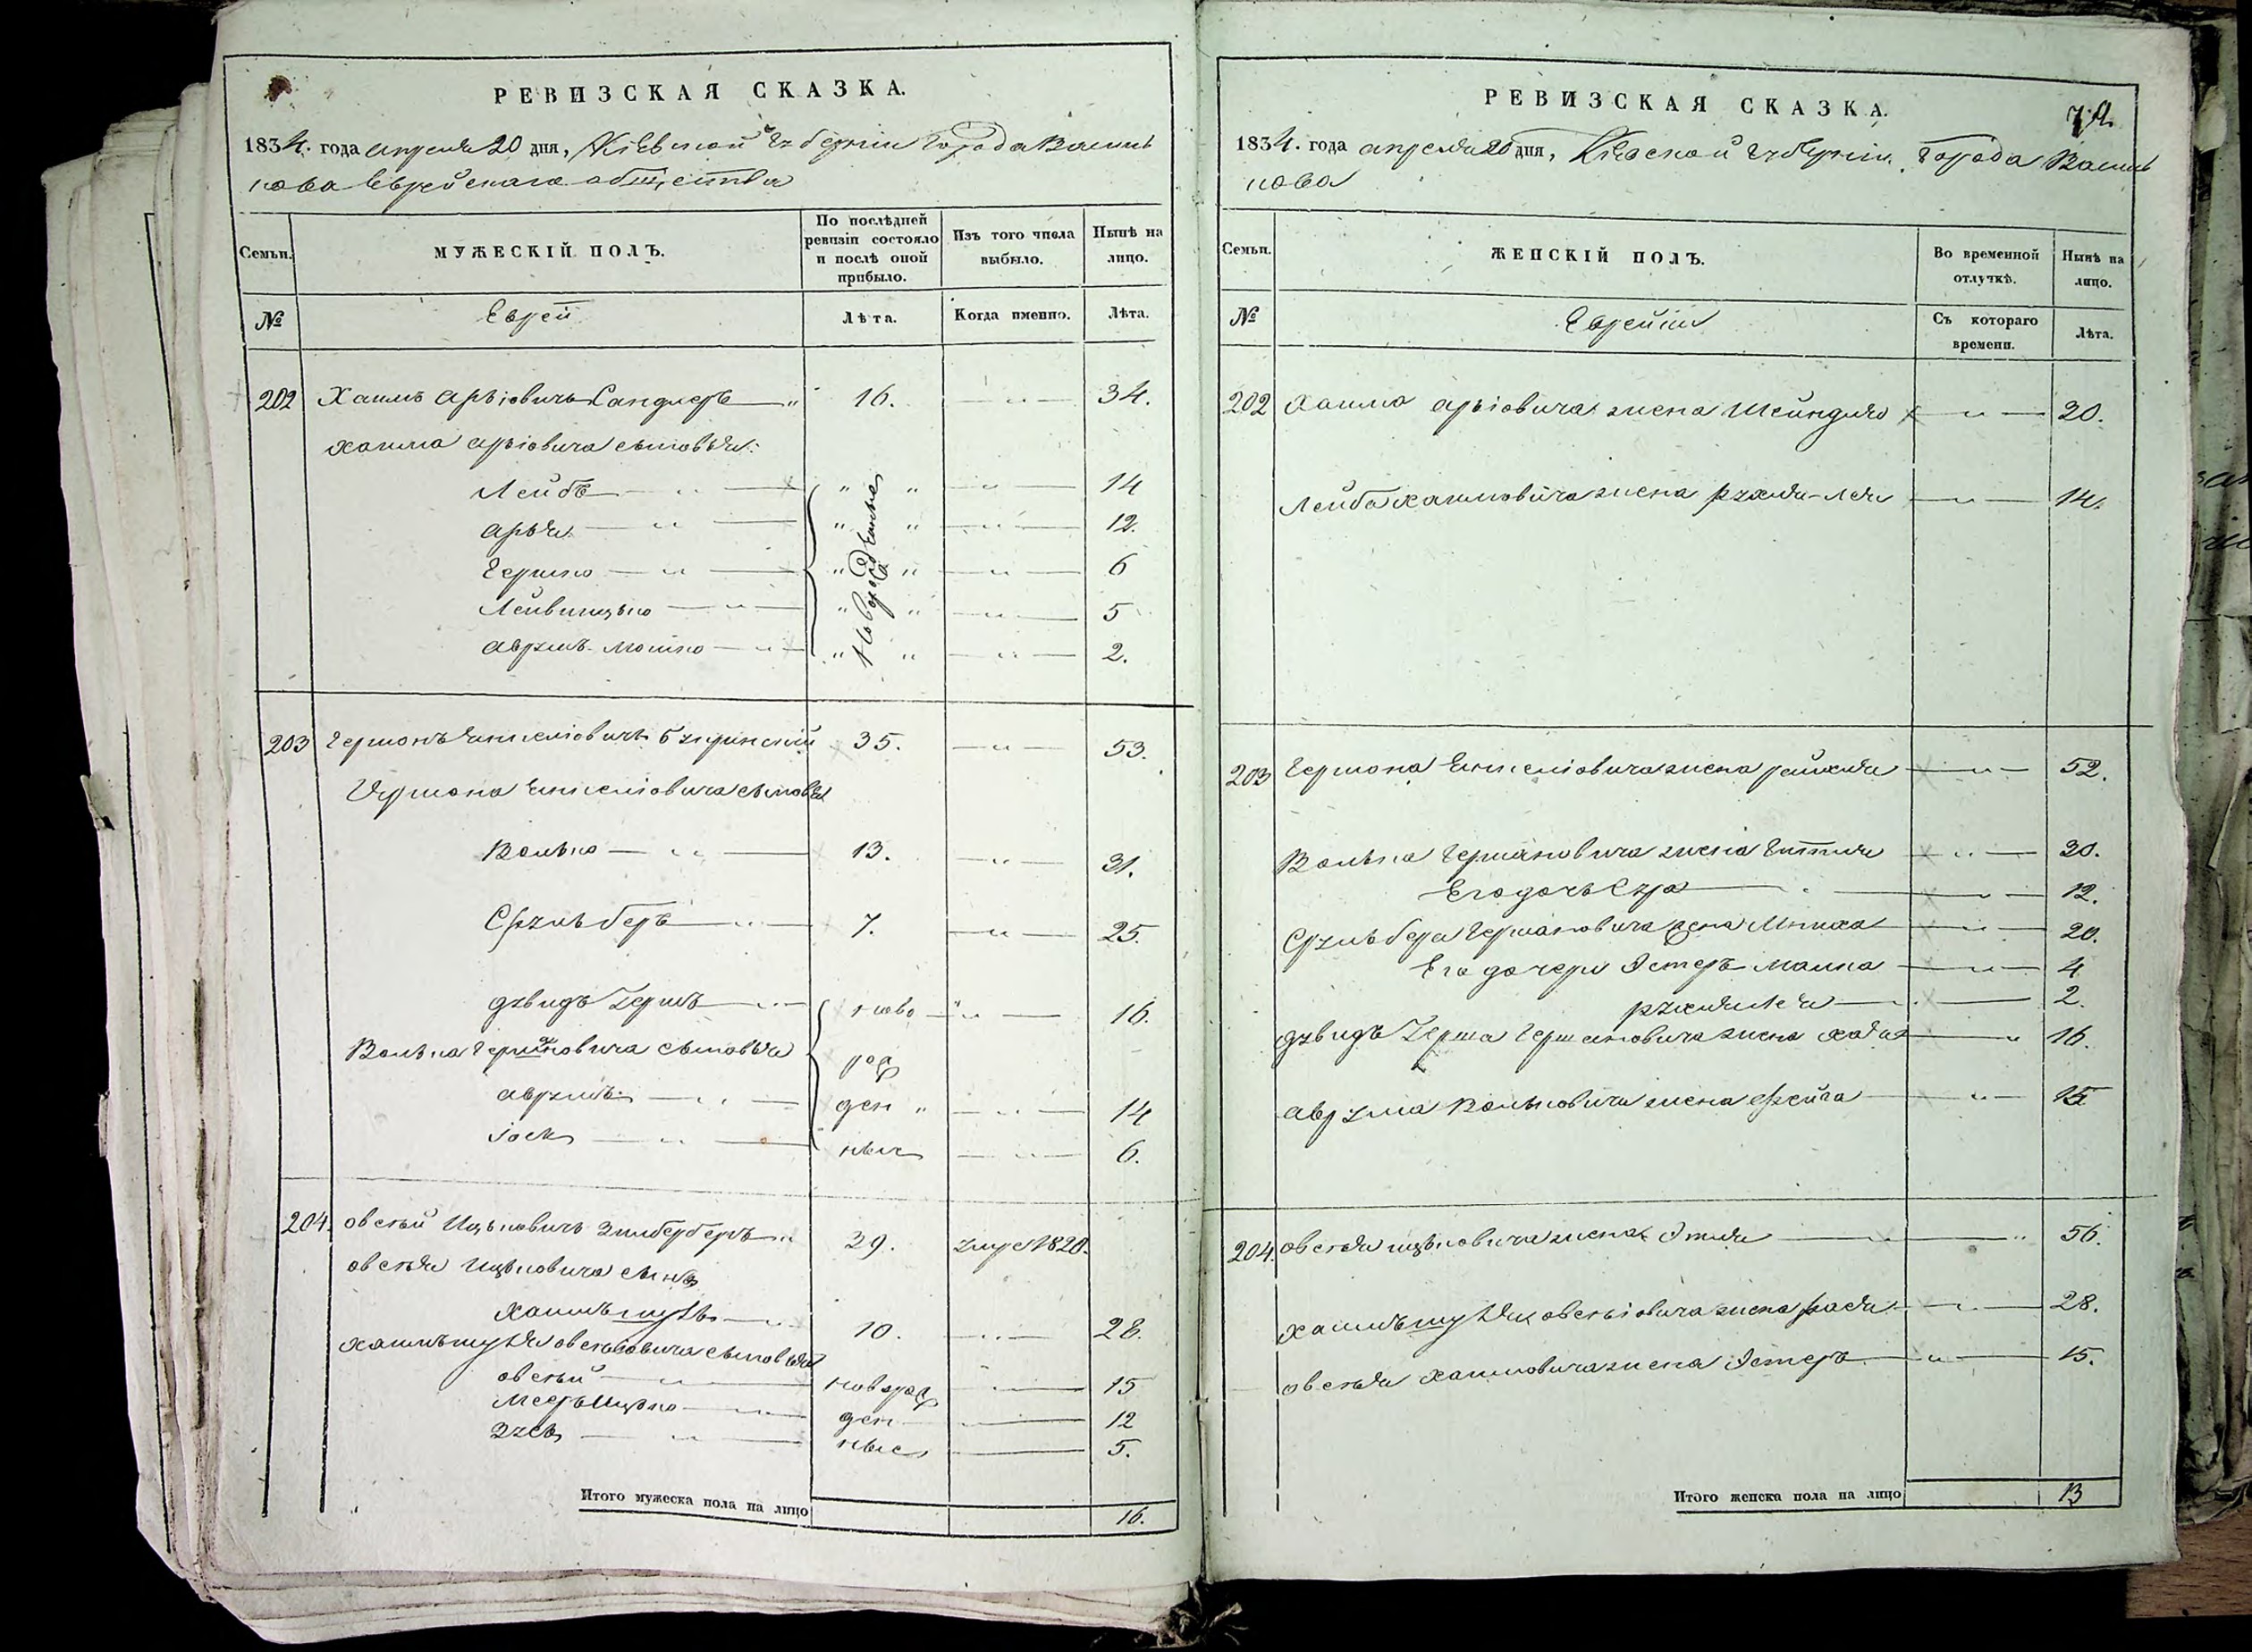 РЕВИЗСКАЯ СКАЗКА.
1834. года апреля 20 дня, Кіевской Губерніи Города Василь
кова Еврейскаго общества
Семьи. МУЖЕСКІЙ ПОЛЪ. По послѣдней ревизіи состояло и послѣ оной прибыло. Изъ того числа выбыло. Нынѣ на лицо.
№ Евреи Лѣта. Когда именно. Лѣта.
202 Хаимъ Арьіовичъ Сандлеръ — " 16. — " — 34.
Хаима Арьіовича сыновья:
Лейбъ — " — " " — " — 14
Арья — " — " " — " — 12.
Гершко — " — " " — " — 6
— " — " " — " — 5
Аврумъ-Мошко — " — " " — " — 2.
Новорожденные
203 Гершонъ 35. — " — 53.
Гершона сыновья
Волько — " — 13. — " — 31.
Сруль беръ — " — 7. — " — 25.
Дувидъ Гершъ — " — ново — " — 16.
Волька Гершоновича сыновья рож
Аврумъ — " — ден " — " — 14
Іось — " — ные — " — 6.
204. Овсѣй Ицьковичъ Зильберберъ " 39. умре 1820.
Овсѣя Ицьковича сынъ
Хаимъ — " 10. — " — 28.
Хаимъ сыновья
Овсѣй — " — новорож — " — 15
Мееръ Ицько — " — ден — 12
Зусь — " — ные — 5.
Итого мужеска пола на лицо 16.
РЕВИЗСКАЯ СКАЗКА.
1834. года апреля 20 дня, Кіевской Губерніи, Города Василь
кова
Семьи. ЖЕНСКІЙ ПОЛЪ. Во временной отлучкѣ. Нынѣ на лицо.
№ Еврейки Съ котораго времени. Лѣта.
202 Хаима Арьіовича жена Шейндля — " — 30.
Лейба Хаимовича жена Рухля-Лея — " — 14.
203 Гершона жена Рейзля — " — 52.
Волька Гершоновича жена — " — 30.
Его дочь Сура — " — 12.
Сруль бера Гершоновича жена — " — 20.
Его дочери Эстеръ Малка — " — 4
Рухля Лея — " — 2.
Дувидъ Герша Гершоновича жена — " 16.
Аврума Вольковича жена Фейга — " — 15
204. Овсѣя Ицьковича жена Этля — " 56.
Хаимъ Овсѣіовича жена — " — 28.
Овсѣя Хаимовича жена Эстеръ — " — 15.
Итого женска пола на лицо 13